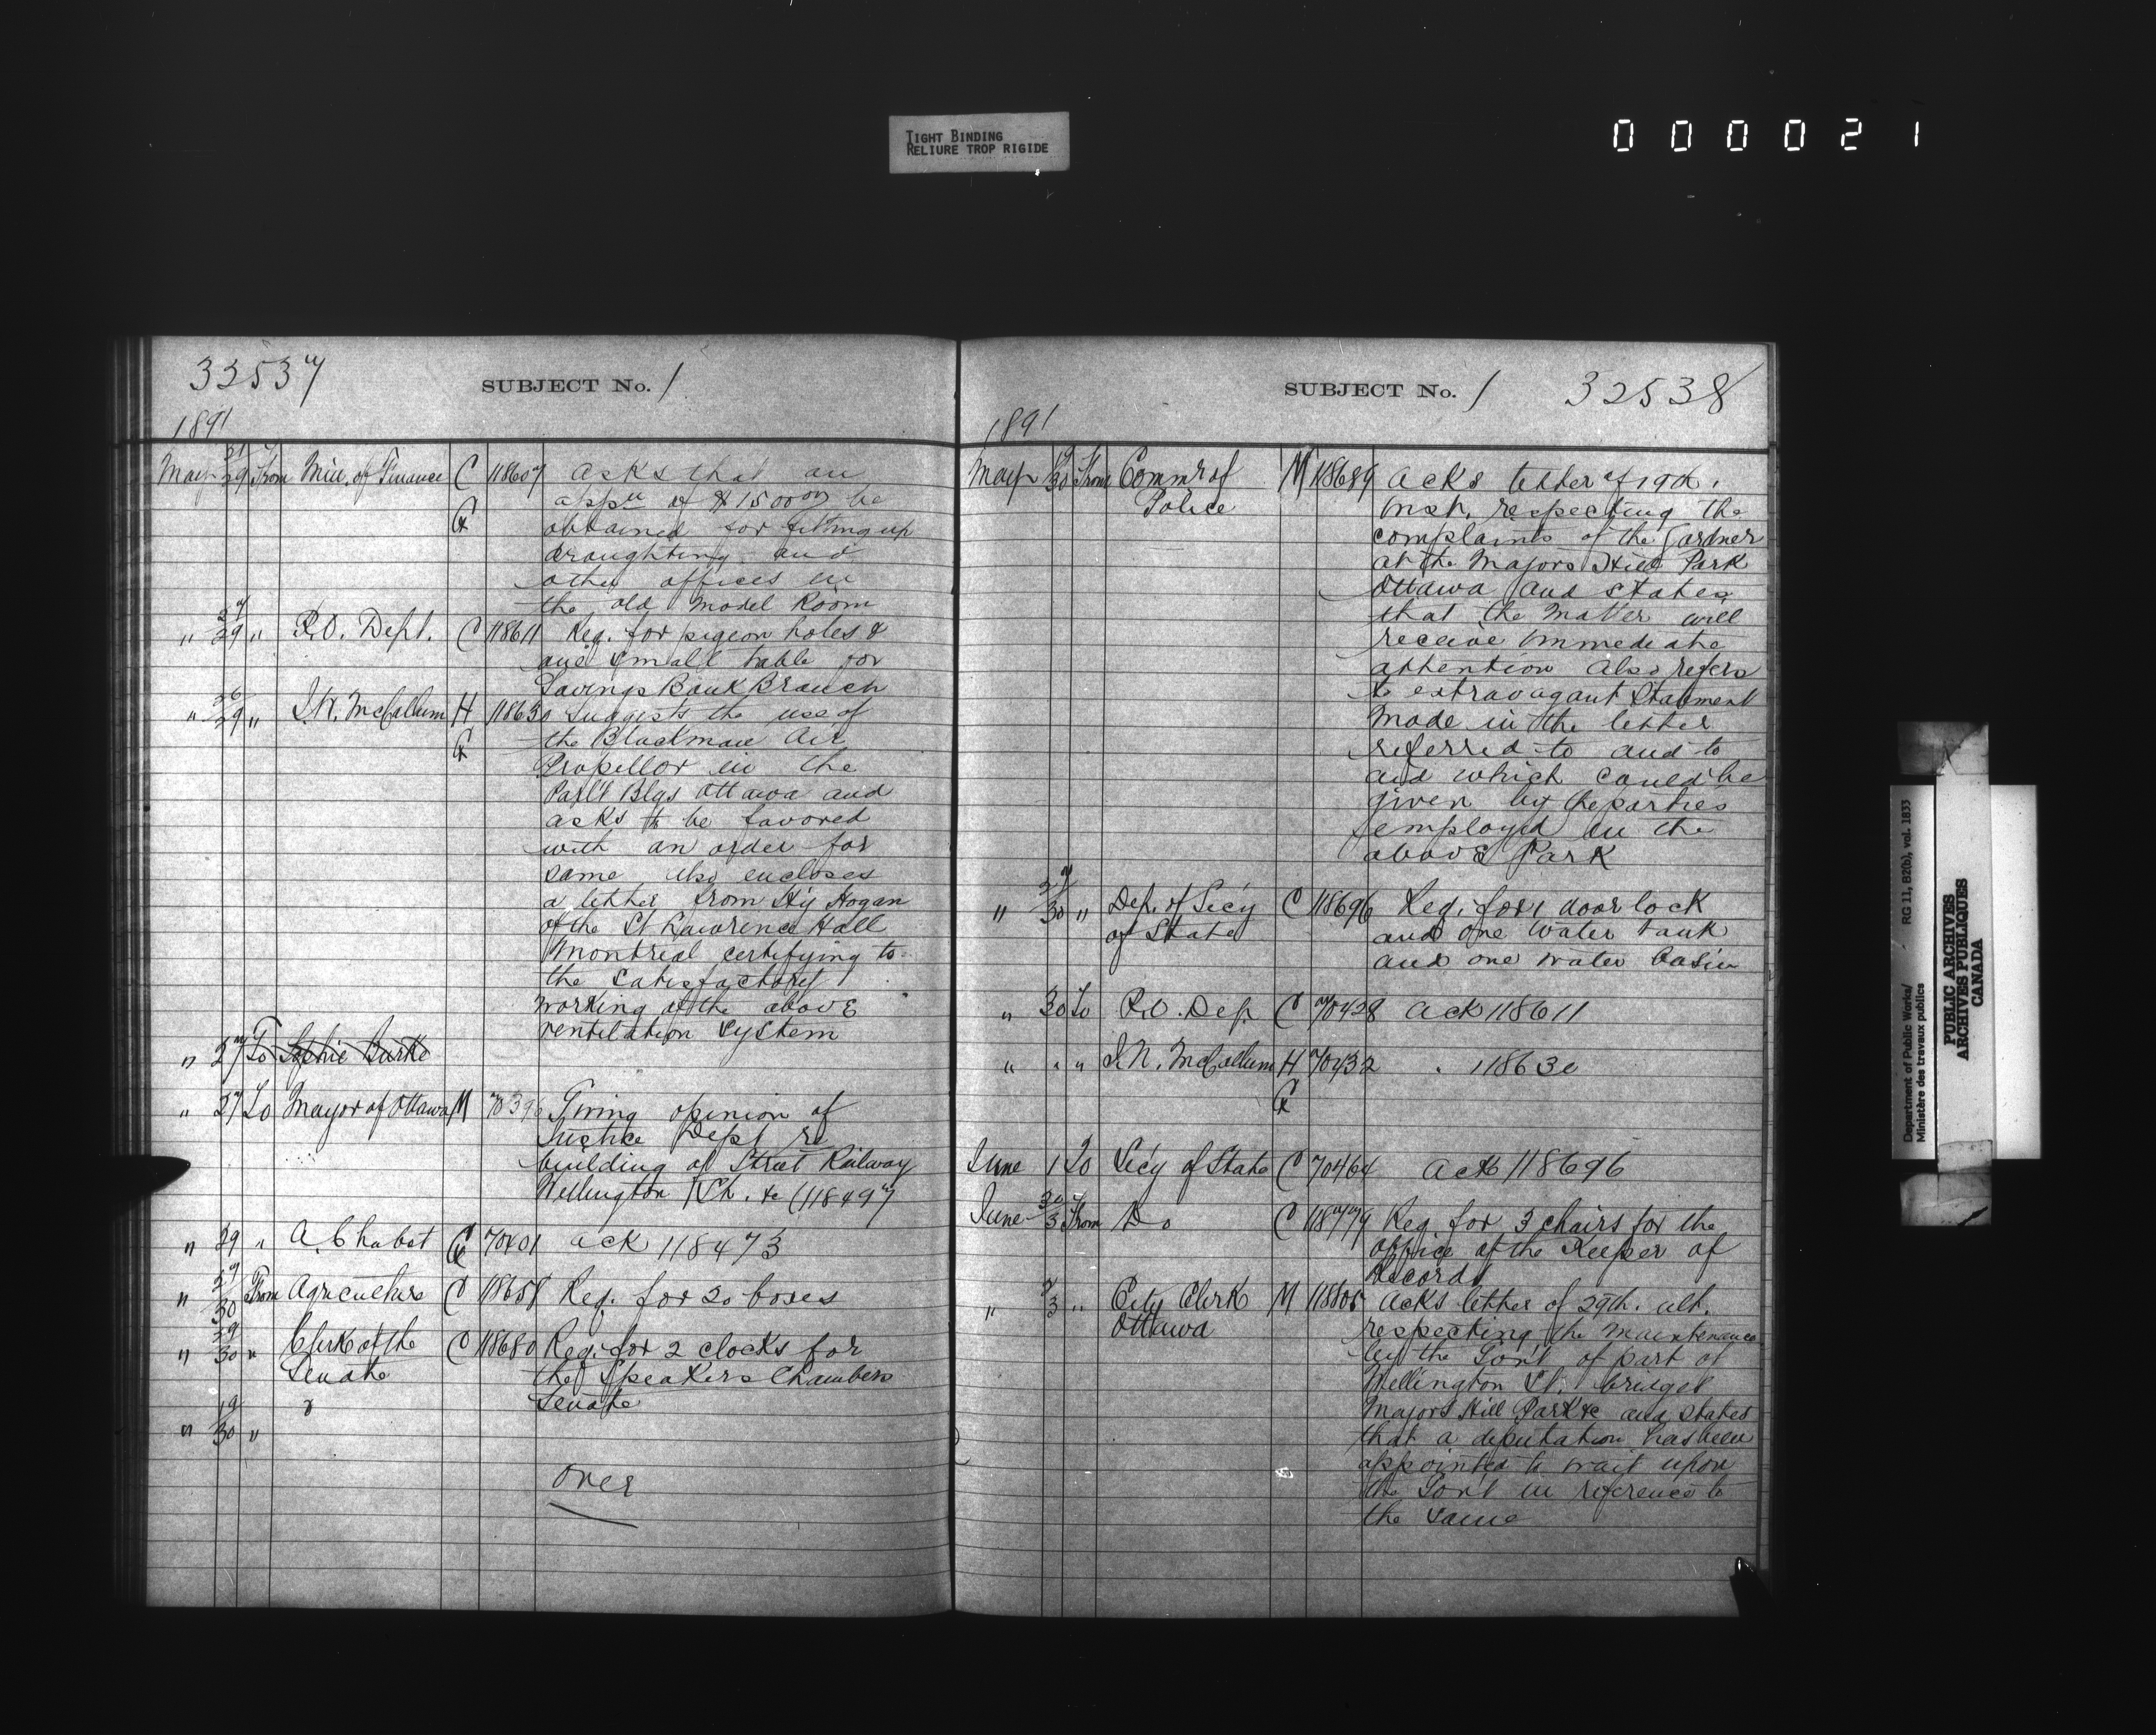 TIGHT BINDING
RELIURE TROP RIGIDE
000021
32537
SUBJECT No. 1
1891
May 21/29 From Min. of Finance C 118607 Asks that an
appn of $1500.00 be
G obtained for fitting up
draughting and
other offices in
the old Model Room
" 27/29 " P.O. Dept. C 118611 Req. for pigeon holes &
one small table for
Savings Bank Branch
" 26/29 " J.N. McCallum H 118630 Suggests the use of
G the Blackman Air
Propellor in the
Parl't Blgs Ottawa and
asks to be favored
with an order for
same also encloses
a letter from Hy Hogan
of the St Lawrence Hall
Montreal certifying to
the satisfactory
working of the above
ventilation system
" 27 To Sophie Burke
" 27 To Mayor of Ottawa M 70396 Giving opinion of
Justice Dept re
building of Street Railway
Wellington St. &c (118497
" 29 " A. Chabot G 70401 ack 118473
" 27/30 From Agriculture C 118658 Req. for 20 boxes
" 29/30 " Clerk of the C 118680 Req. for 2 clocks for
Senate the Speakers Chambers
Senate
" 19/30 "
Over
SUBJECT No. 1 32538
1891
May 19/30 From Commr of M 118689 Acks letter of 19th.
Police inst. respecting the
complaints of the Gardner
at the Majors Hill Park
Ottawa and states
that the matter will
receive immediate
attention also refers
to extravagant statment
made in the letter
referred to and to
aid which could be
given by the parties
employed in the
above Park
" 27/30 " Dep. of Sec'y C 118696 Req. for 1 door lock
of State and one water tank
and one water basin
" 30 To P.O. Dep. C 70428 ack 118611
" " " J.N. McCallum H 70432 " 118630
G
June 1 To Sec'y of State C 70464 ack 118696
June 30/3 From Do C 118779 Req for 3 chairs for the
office of the Keeper of
Records
" 2/3 " City Clerk M 118805 Acks letter of 29th. ult.
Ottawa respecting the maintenance
by the Gov't of part of
Wellington St. bridges
Majors Hill Park &c and states
that a deputation has been
appointed to wait upon
the Gov't in reference to
the same
Department of Public Works/ RG 11, B2(b), vol. 1833
Ministère des travaux publics
PUBLIC ARCHIVES
ARCHIVES PUBLIQUES
CANADA